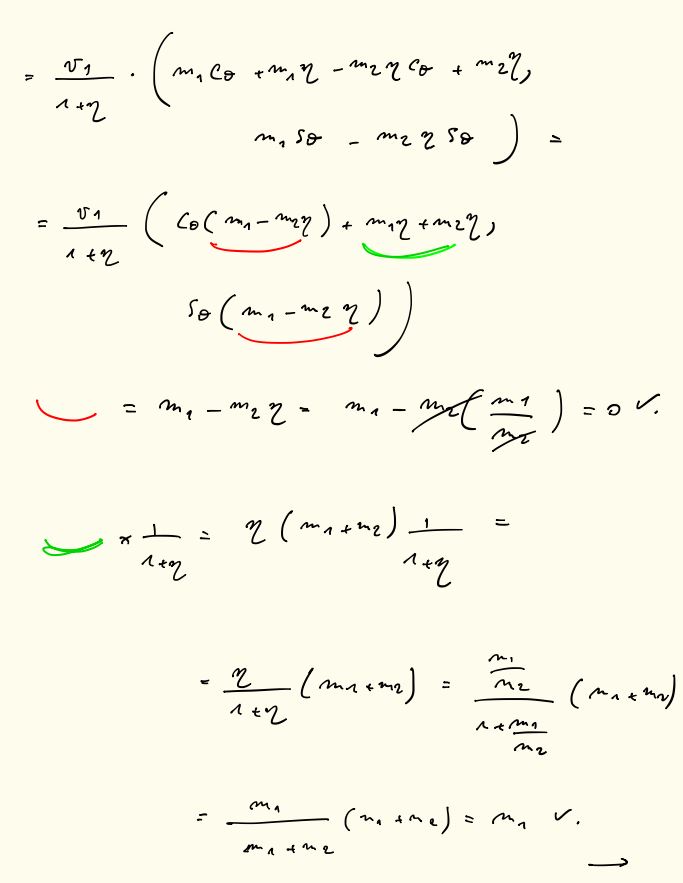 = v1/(1+η) · (m1 cθ + m1 η - m2 η cθ + m2 η,
m1 sθ - m2 η sθ) =
= v1/(1+η) (cθ(m1 - m2η) + m1η + m2η,
sθ(m1 - m2 η))
= m1 - m2 η = m1 - m2(m1/m2) = 0 ✓.
* 1/(1+η) = η (m1+m2) 1/(1+η) =
= η/(1+η) (m1+m2) = (m1/m2)/(1+m1/m2) (m1+m2)
= m1/(m1+m2) (m1+m2) = m1 ✓.
→